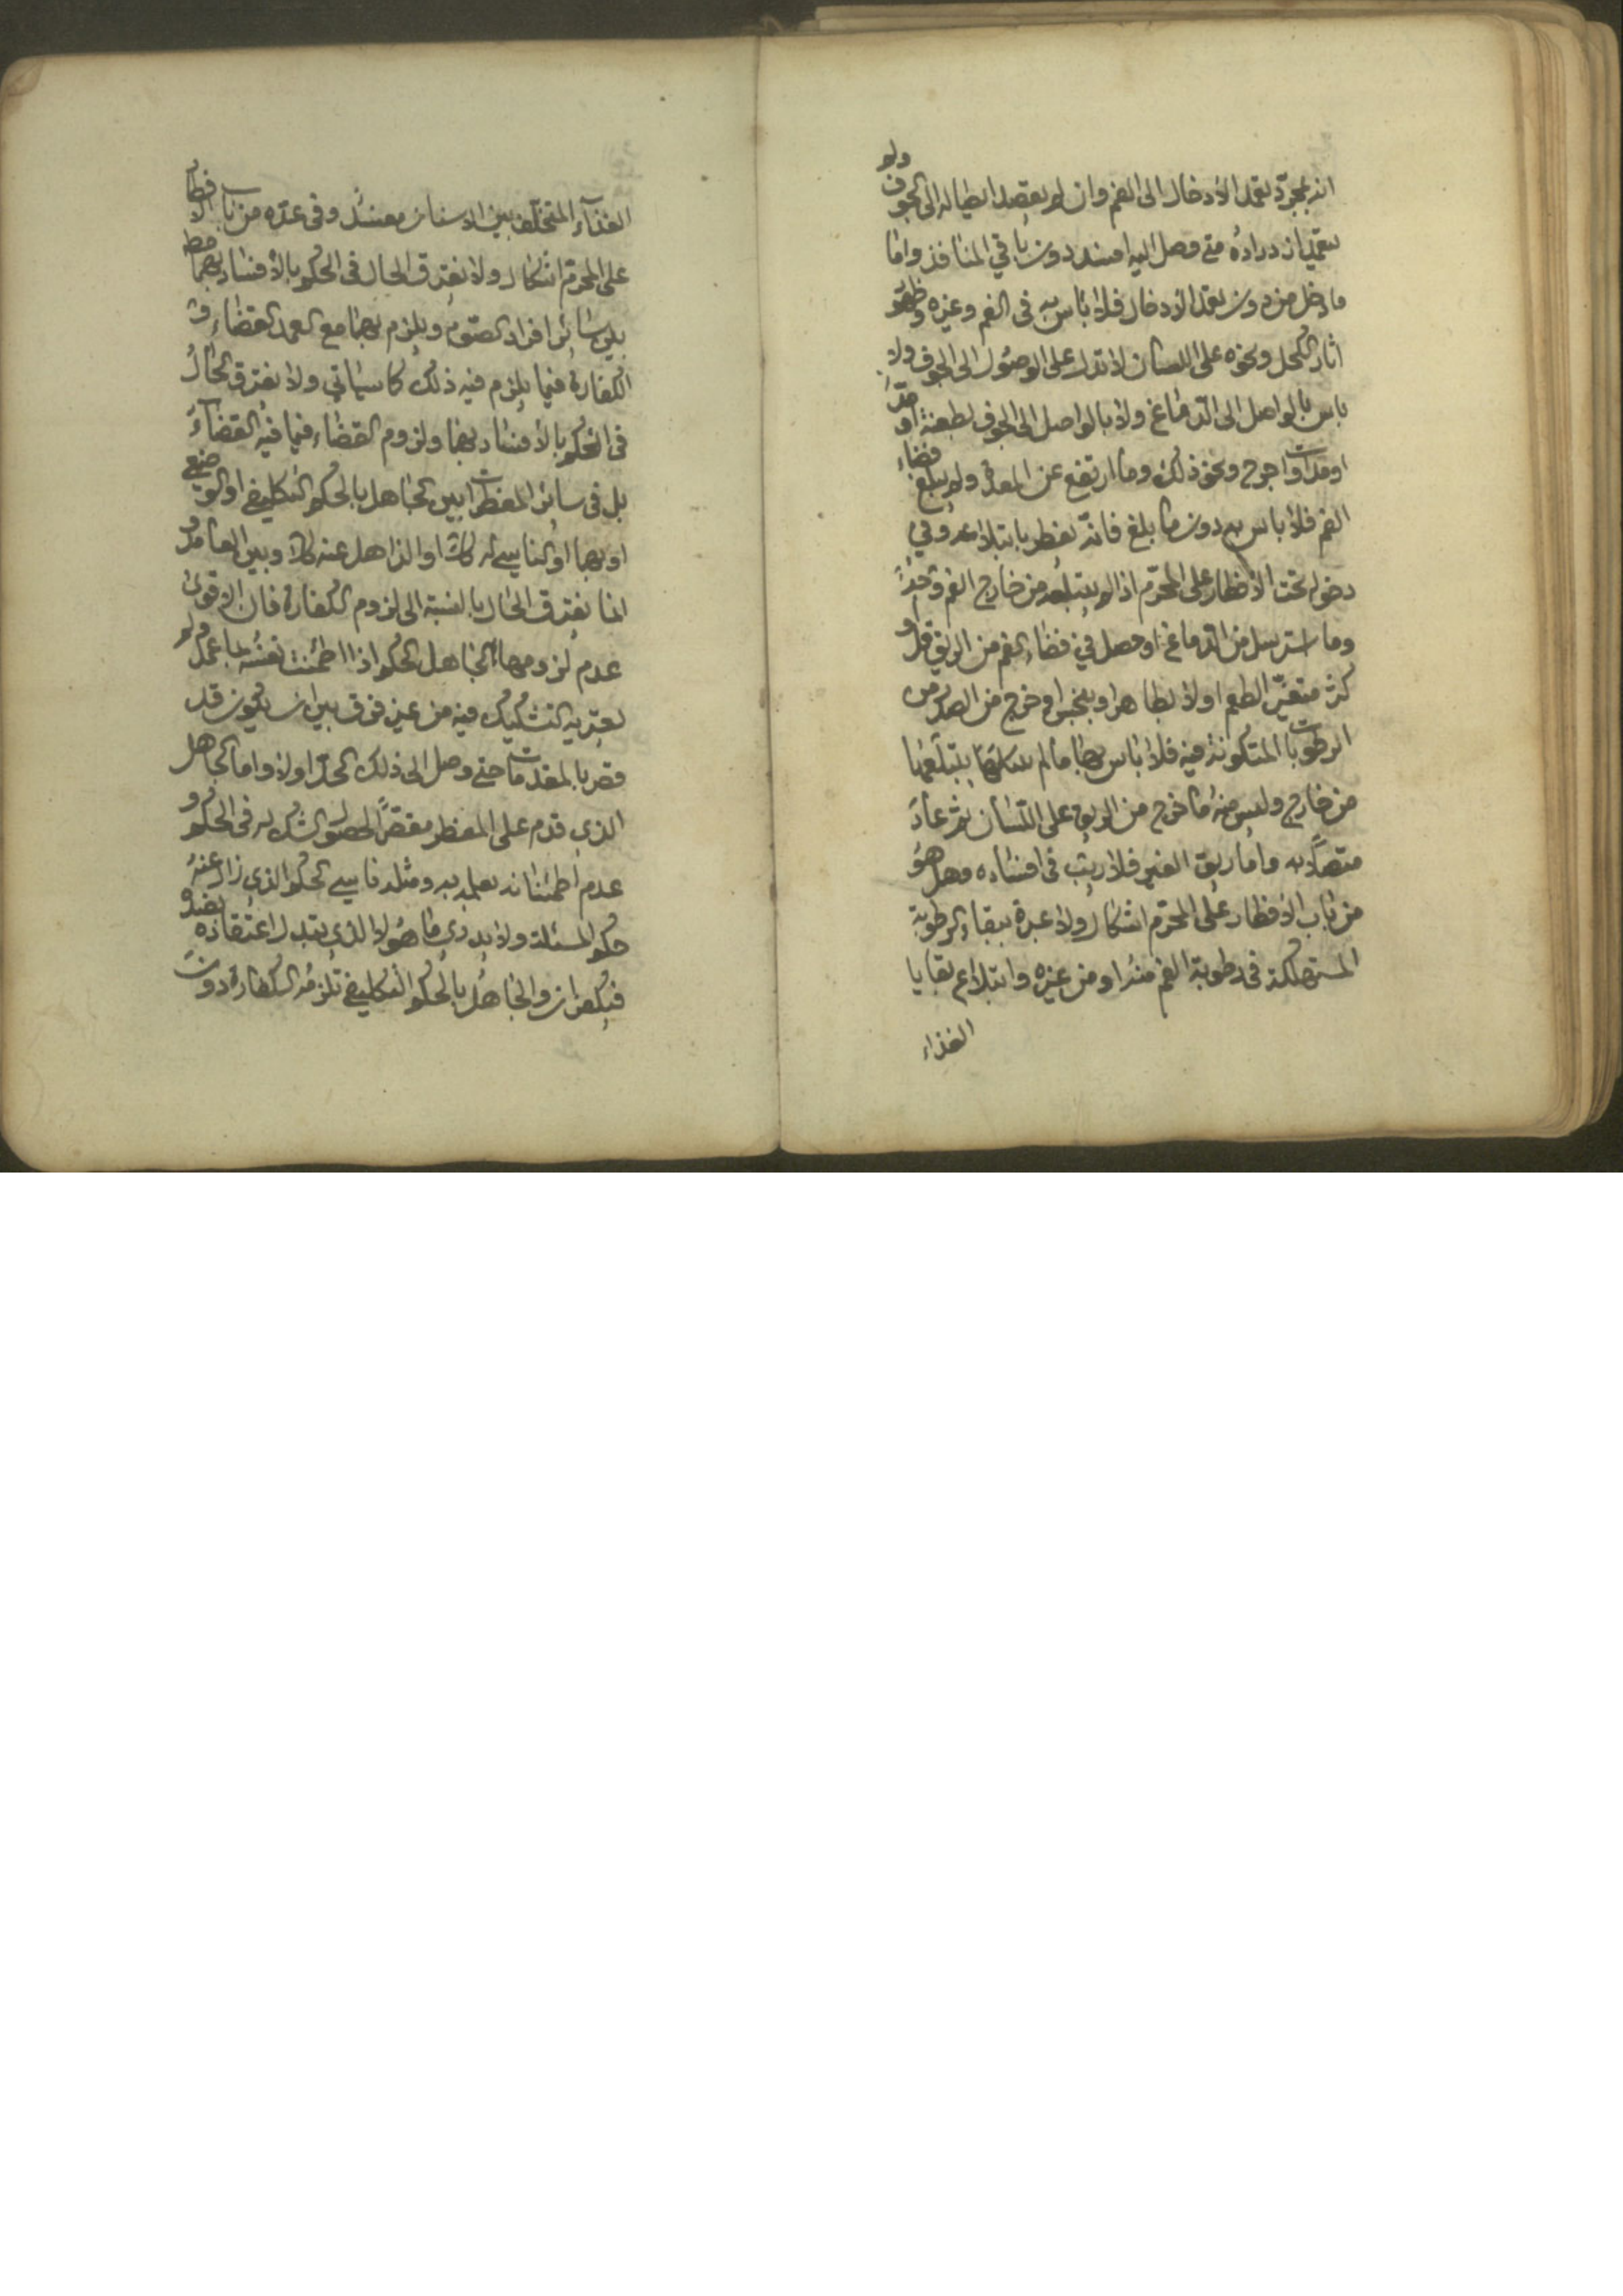 انه بمجرد تعمد الادخال الى الفم وان لم يقصد ايصاله الى الجوف ولو
بتعمد ازدراده متى وصل اليه افسد دون باقي المنافذ واما
ما دخل من دون تعمد الادخال فلا باس به في الفم وغيره وظهور
اثار الكحل ونحوه على اللسان لا تدل على الوصول الى الجوف ولا
باس بالواصل الى الدماغ ولا بالواصل الى الجوف لطعنة او
او جروح ونحو ذلك وما ارتفع عن المعدة ولم يبلغ فضاء
الفم فلا باس به دون ما بلغ فانه يفطر بابتلاعه وفي
دخوله تحت الافطار على المحرم اذا لم يبتلعه من خارج الفم
وما استرسل من الدماغ او حصل في فضاء الفم من الريق قل او
كثر متغير الطعم اولا بطاهر او بنجس او خرج من الصدر من
الرطوبات المتكونة فيه فلا باس بها ما لم يبتلعها
من خارج وليس منه ما خرج من الريق على اللسان ثم عاد
متصلا به واما ريق الغير فلا ريب في افساده وهل هو
من باب الافطار على المحرم اشكال ولا عبرة ببقاء الرطوبة
المستهلكة في رطوبة الفم منه او من غيره وابتلاع بقايا
الغذاء
الغذاء المتخلف بين الاسنان مفسد وفي عده من باب الافطار
على المحرم اشكال ولا يفترق الحال في الحكم بالافساد بهما
بين سائر افراد الصوم ويلزم بهما مع العمد القضاء و
الكفارة فيما يلزم فيه ذلك كما سياتي ولا يفترق الحال
في الحكم بالافساد بهما ولزوم القضاء فيما فيه القضاء
بل في سائر المفطرات بين الجاهل بالحكم التكليفي او الوضعي
او بهما او الناسي له كذلك او الذاهل عنه كذلك وبين العامد و
انما يفترق الحال بالنسبة الى لزوم الكفارة فان الاقوى
عدم لزومها الجاهل الحكم اذا اطمئنت نفسه بما عمل ولم
يعتريه التشكيك فيه من غير فرق بين ان يكون قد
قصر بالمقدمات حتى وصل الى ذلك الحد اولا واما الجاهل
الذي قدم على المفطر مقصرا لحصول الشك له في الحكم و
عدم اطمئنانه بعلمه به ومثله ناسي الحكم الذي زال عنه
حكم المسئلة ولا يدري ما هو لا الذي تبدل اعتقاده بضده
فيكفران والجاهل بالحكم التكليفي تلزمه الكفارة دون